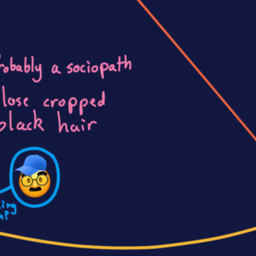 robably a sociopath
lose cropped
black hair